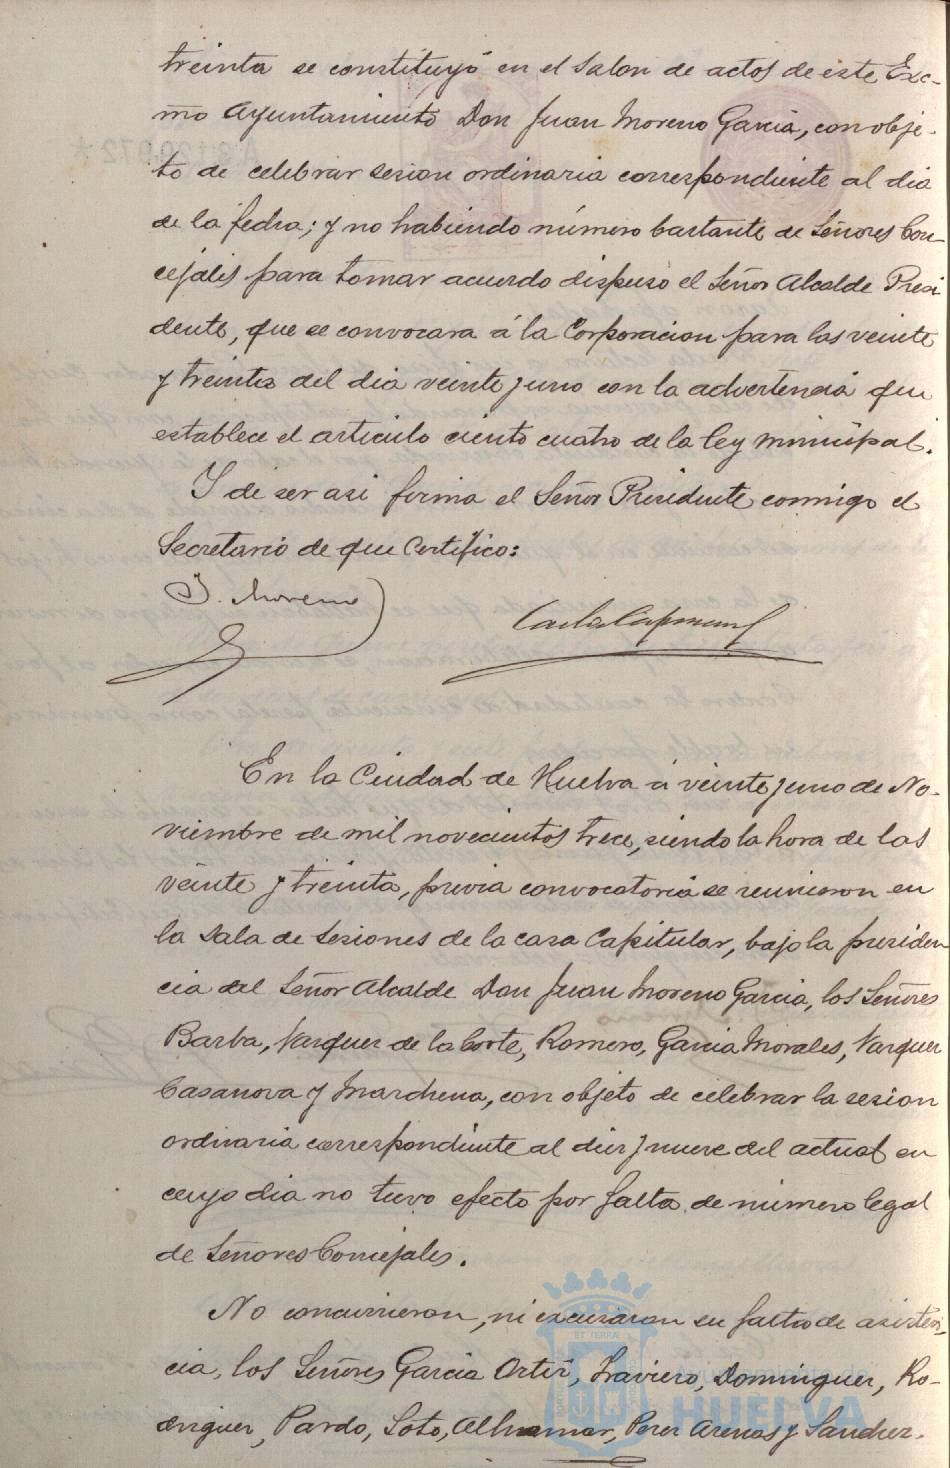 treinta se constituyó en el Salon de actos de este Exc-
mo Ayuntamiento Don Juan Moreno Garcia, con obje-
to de celebrar sesion ordinaria correspondiente al dia
de la fecha; y no habiendo número bastante de Señores Con-
cejales para tomar acuerdo dispuso el Señor Alcalde Presi
dente, que se convocara á la Corporacion para las veinte
y treinta del dia veinte y uno con la advertencia que
establece el articulo ciento cuatro de la ley municipal.
Y de ser asi firma el Señor Presidente conmigo el
Secretario de que Certifico:
J. Moreno
En la Ciudad de Huelva á veinte y uno de No-
viembre de mil novecientos trece, siendo la hora de las
veinte y treinta, previa convocatoria se reunieron en
la Sala de Sesiones de la casa Capitular, bajo la presiden
cia del Señor Alcalde Don Juan Moreno Garcia, los Señores
Barba, Vazquez de la Corte, Romero, Garcia Morales, Vazquez
Casanova y Marchena, con objeto de celebrar la sesion
ordinaria correspondiente al diez y nueve del actual en
cuyo dia no tuvo efecto por falta de número legal
de Señores Concejales.
No concurrieron, ni excusaron su falta de asisten-
cia, los Señores Garcia Ortiz, Traviero, Dominguez, Ro-
driguez, Pardo, Soto, Perez Arenas y Sanchez.
Ayuntamiento de
HUELVA